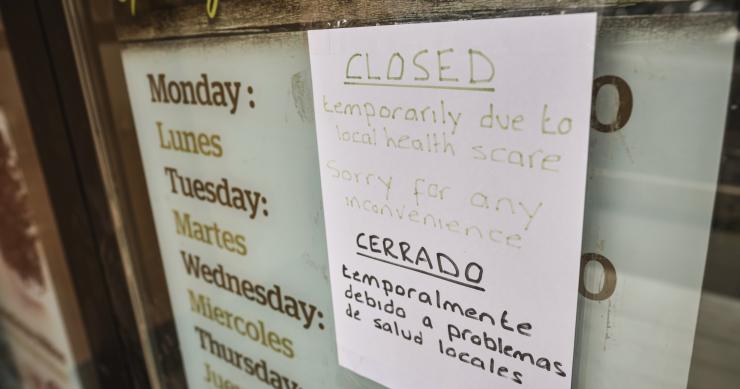 Monday:
Lunes
Tuesday:
Martes
Wednesday:
Miercoles
Thursday
CLOSED
temporarily due to
local health scare
Sorry for any
inconvenience
CERRADO
temporalmente
debido a problemas
de salud locales